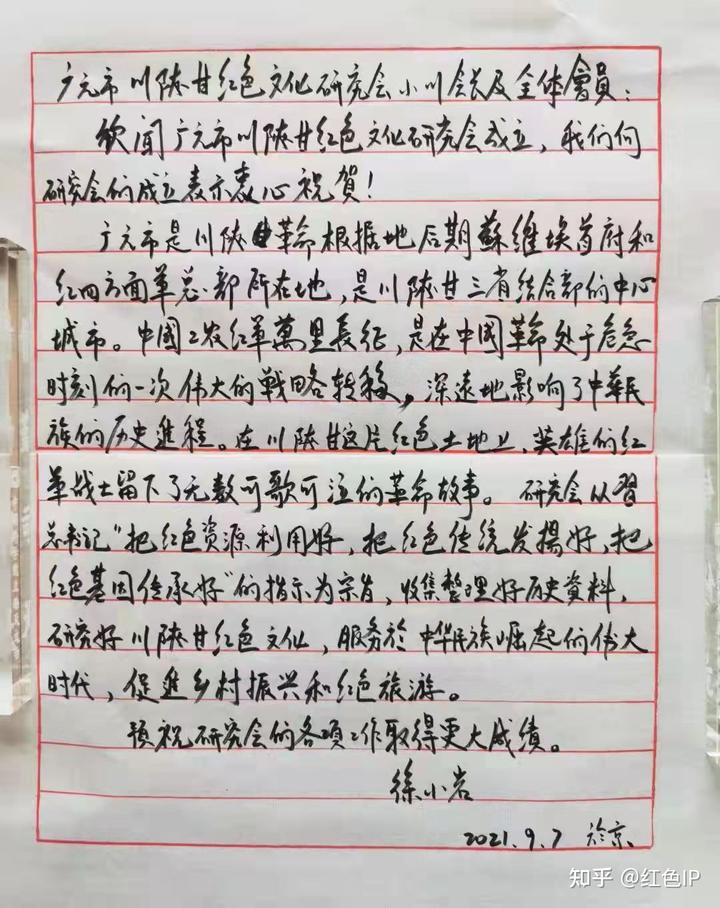 广元市川陕甘红色文化研究会小川会长及全体會員：
欣闻广元市川陕甘红色文化研究会成立，我们向
研究会的成立表示衷心祝賀！
广元市是川陕革命根据地后期蘇維埃政府和
红四方面军总部所在地，是川陕甘三省结合部的中心
城市。中國工农红军萬里長征，是在中國革命处于危急
时刻的一次伟大的战略转移，深遠地影响了中華民
族的历史進程。在川陕甘这片红色土地上，英雄的红
军战士留下了无数可歌可泣的革命故事。研究会以習
总书记“把红色资源利用好，把红色传统发揚好，把
红色基因传承好”的指示为宗旨，收集整理好历史資料，
研究好川陕甘红色文化，服务於中华民族崛起的伟大
时代，促進乡村振兴和红色旅游。
预祝研究会的各項工作取得更大成績。
徐小岩
2021.9.7 於京
知乎 @红色IP